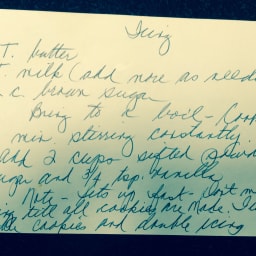 Icing
T. butter
T. milk (add more as neede
c. brown sugar
Bring to a boil - Cook
min. stirring constantly
and 2 cups sifted powd
ugar and 3/4 tsp. vanilla
Note - Sets up fast - Don't m
ing till all cookies are made. I
cookies and double icing